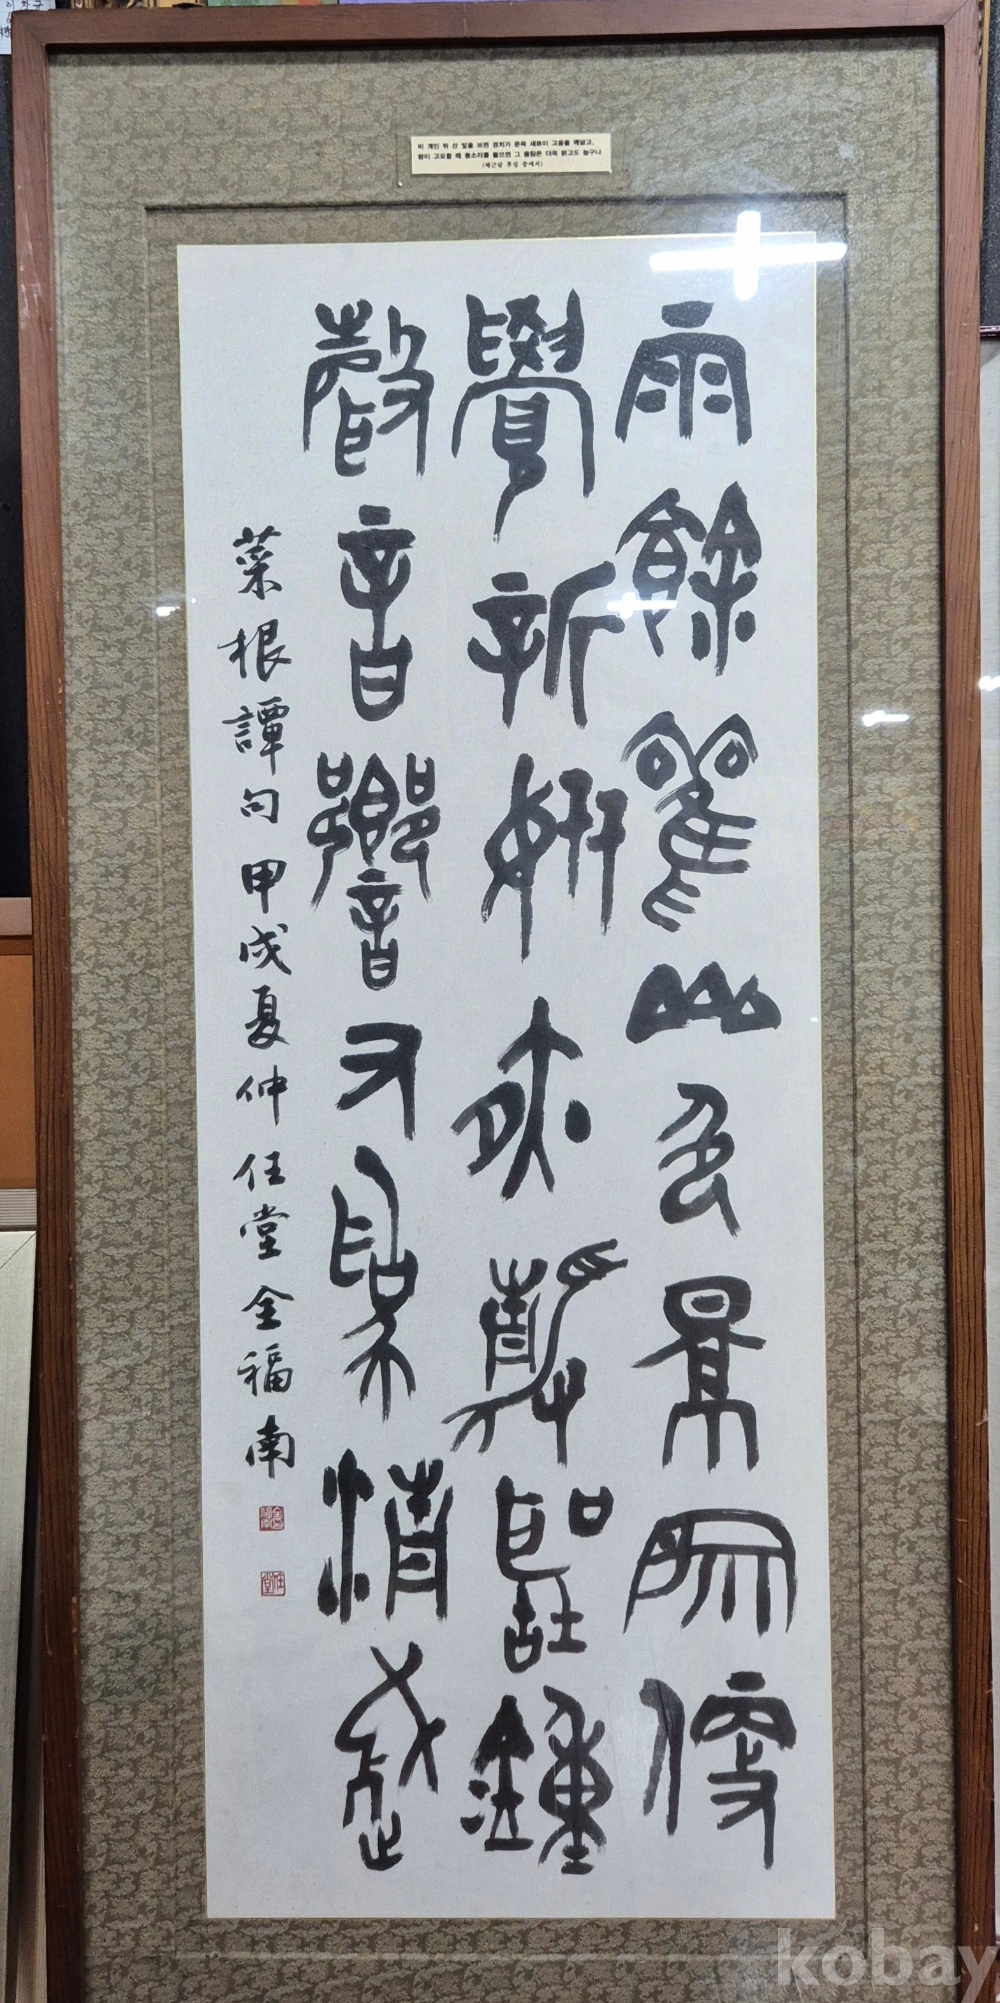 비 개인 뒤 산 빛을 보면 경치가 문득 새로이 고움을 깨닫고,
밤이 고요할 때 종소리를 들으면 그 울림은 더욱 맑고도 높구나
(채근담 후집 중에서)
雨餘觀山色景象便
覺新妍夜靜聽鍾
聲音響尤爲清越
菜根譚句 甲戌夏仲 任堂 全福南
任堂
kobay